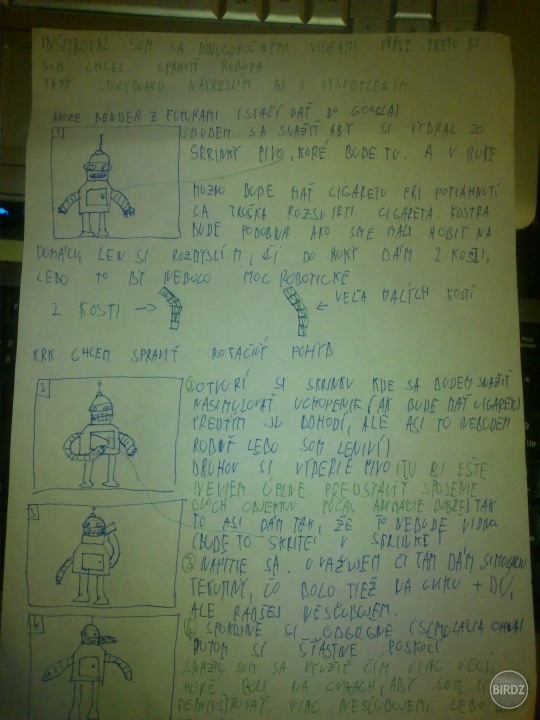 INŠPIROVAL SOM SA MINULOROČNÝMI VIDEAMI PRÁVE PRETO BY
SOM CHCEL SPRAVIŤ ROBOTA
TAKÝ STORYBOARD NAKRESLÍM AJ S VYSVETLENÍM.
AKOŽE BENDER Z FUTURAMI (STAČÍ DAŤ DO GOOGLA)
1
BUDEM SA SNAŽIŤ ABY SI VYBRAL ZO
SKRINKY PIVO, KORÉ BUDE TU. A V RUKE
MOŽNO BUDE MAŤ CIGARETU PRI POTIAHNUTÍ
SA TROŠKA ROZSVIETI CIGARETA. KOSTRA
BUDE PODOBNÁ AKO SME MALI ROBIŤ NA
DOMÁCU, LEN SI ROZMYSLÍM, ČI DO RUKY DÁM 2 KOSTI,
LEBO TO BY NEBOLO MOC ROBOTICKÉ
2 KOSTI
VEĽA MALÝCH KOSTÍ
KRK CHCEM SPRAVIŤ ROTAČNÝ POHYB
2
② OTVORÍ SI SKRINKU KDE SA BUDEM SNAŽIŤ
NASIMULOVAŤ UCHOPENIE (AK BUDE MAŤ CIGARETU
PREDTÝM JU ODHODÍ, ALE ASI TO NEBUDEM
ROBIŤ LEBO SOM LENIVÍ)
DRUHOU SI VYBERIE PIVO (TU SI EŠTE
NEVIEM ÚPLNE PREDSTAVIŤ SPOJENIE
DVOCH OBJEKTOV POČAS ANIMÁCIE DOBRE) TAK
TO ASI DÁM TAK, ŽE TO NEBUDE VIDNO
(BUDE TO SKRITÉ V SKRINKE)
3
③ NAPITIE SA. UVAŽUJEM ČI TAM DÁM SIMULÁCIU
TEKUTINY, ČO BOLO TIEŽ NA CVIKU + DÚ,
ALE RADŠEJ NESĽUBUJEM.
4
④ SPOKOJNE SI ODGRGNE (SIMULÁCIA OHŇA)
POTOM SI ŠŤASTNE POSKOČÍ
SNAŽIL SOM SA VYUŽIŤ ČÍM VIAC VECÍ,
KORÉ BOLI NA CVIKACH, ABY SOM ICH
DEMONŠTROVAL. VIAC NESĽUBUJEM, LEBO
BIRDZ